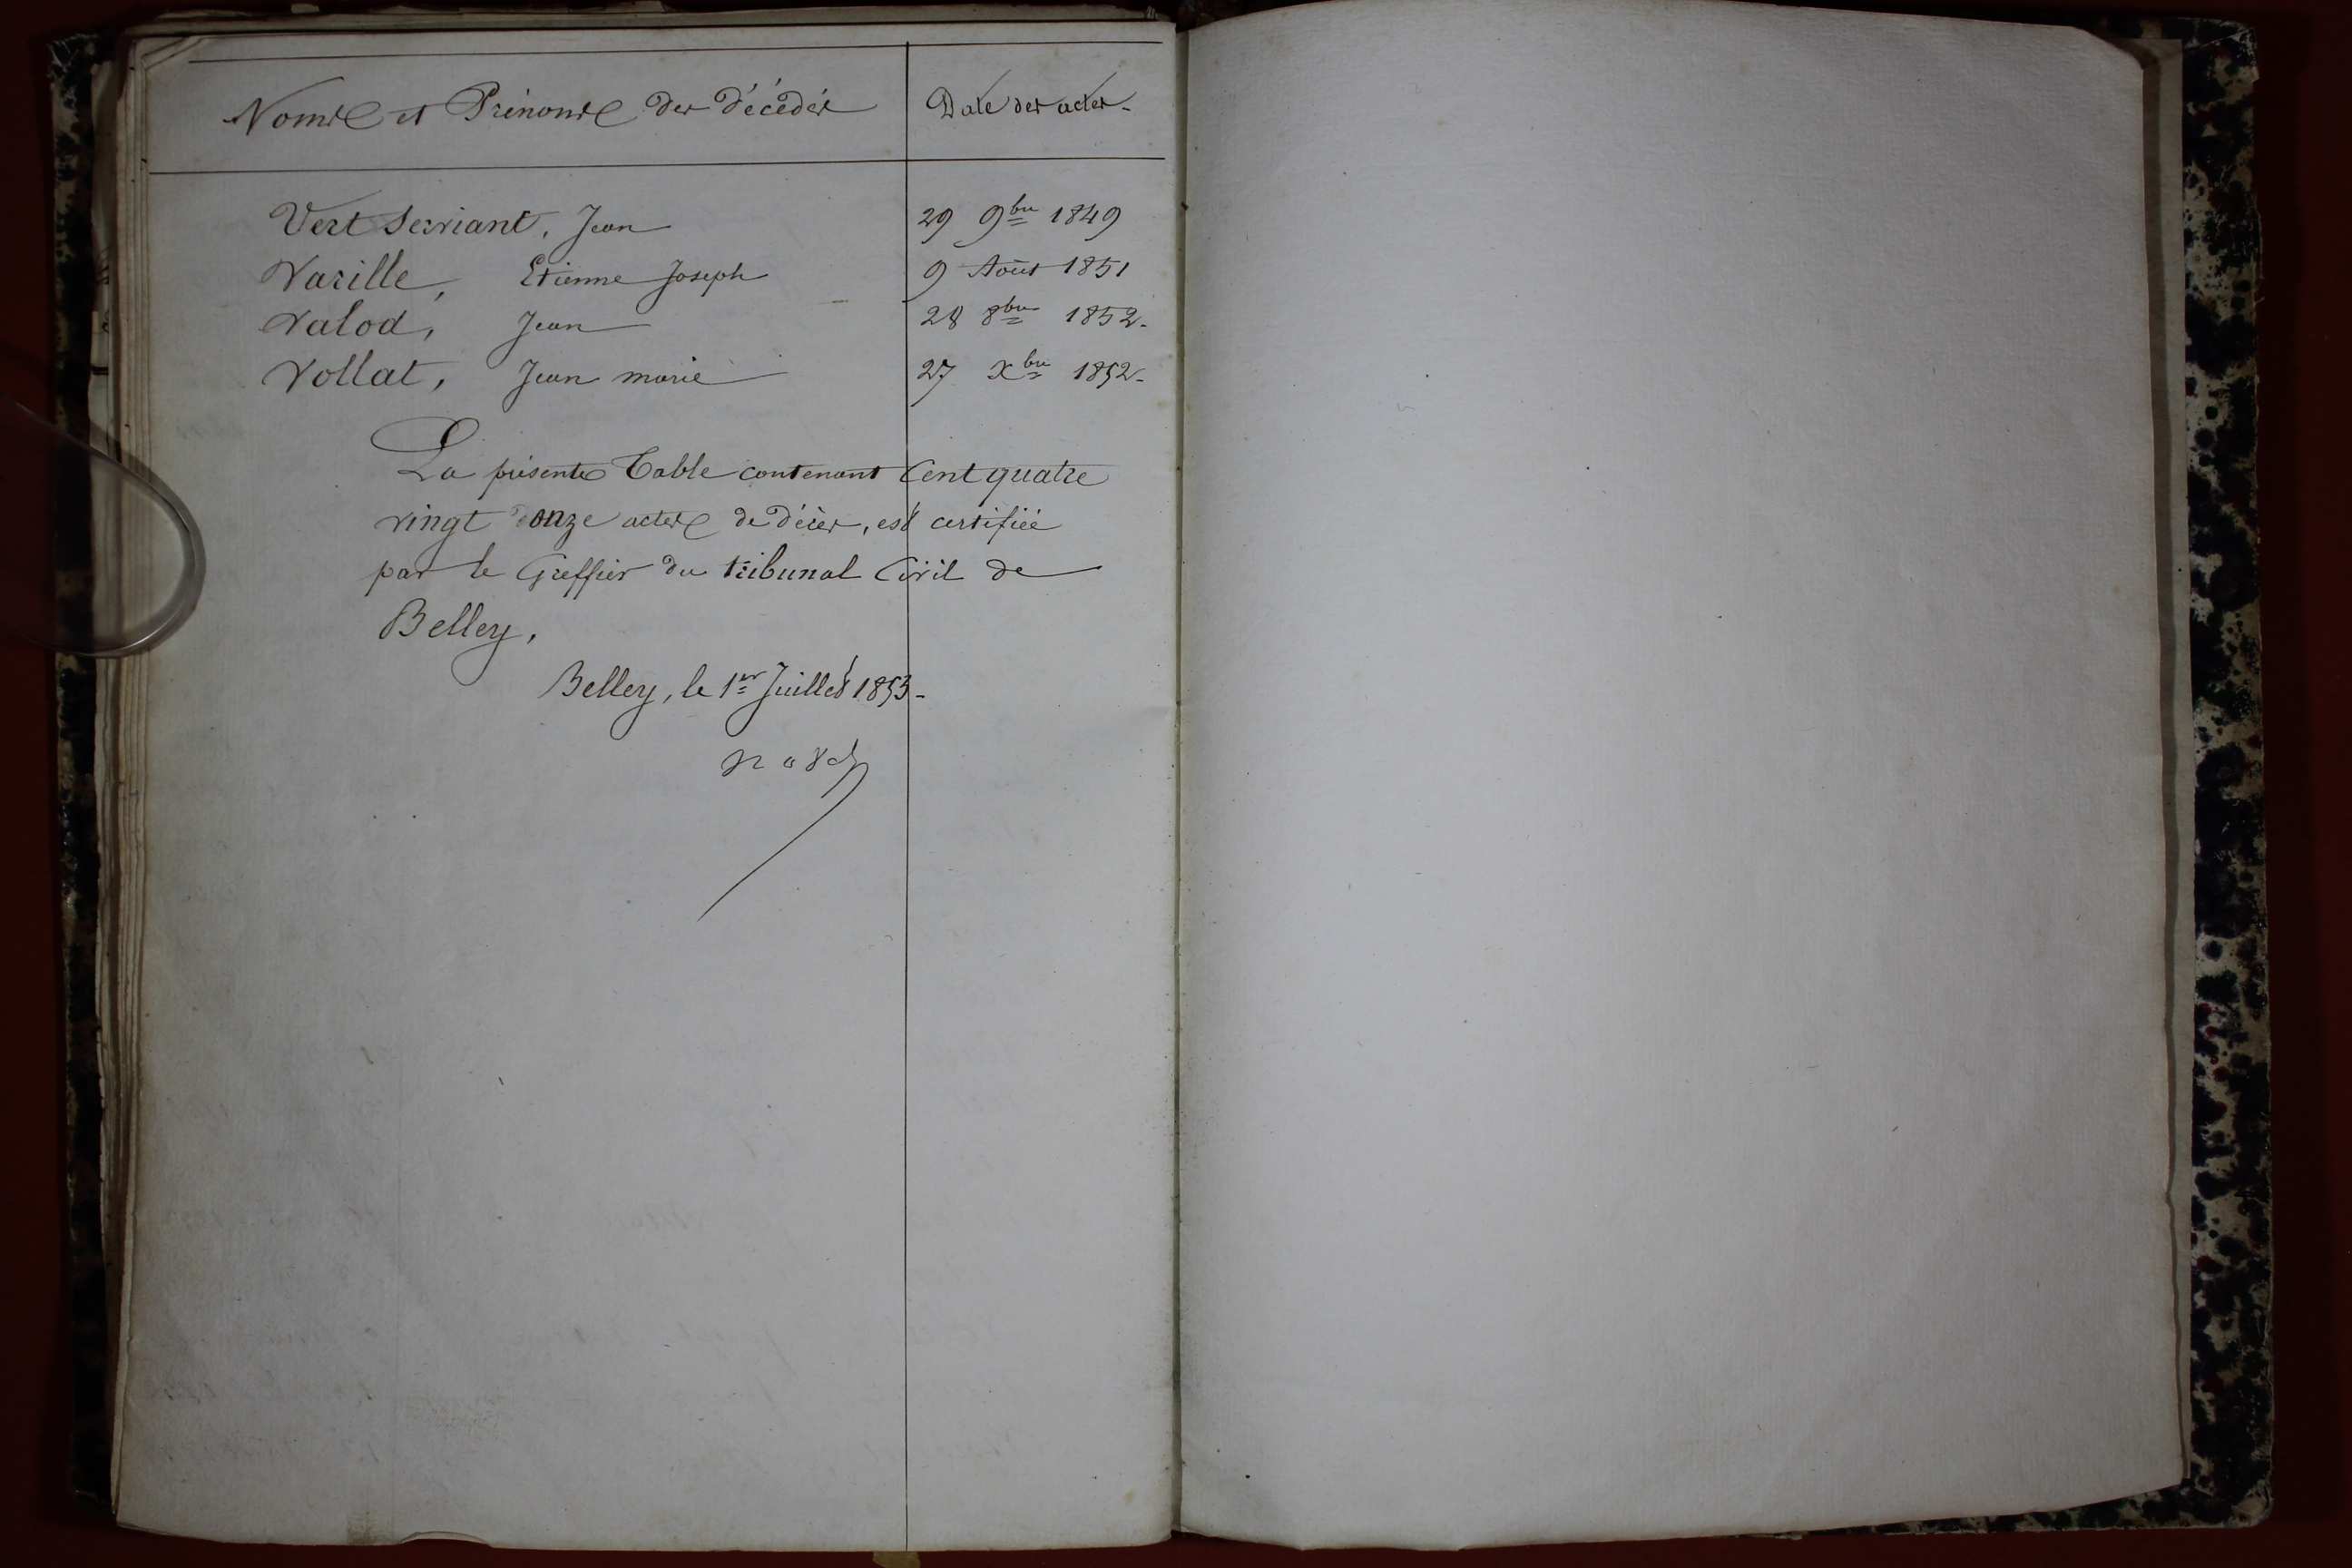 Noms et Prénoms des décédés Date des actes.
Vert Serviant, Jean 29 9bre 1849
Varille, Etienne Joseph 9 Août 1851
Valod, Jean 28 8bre 1852.
Vollat, Jean marie 27 Xbre 1852.
La présente Table contenant Cent quatre
vingt onze actes de décès, est certifiée
par le Greffier du tribunal Civil de
Belley,
Belley, le 1er Juillet 1853.